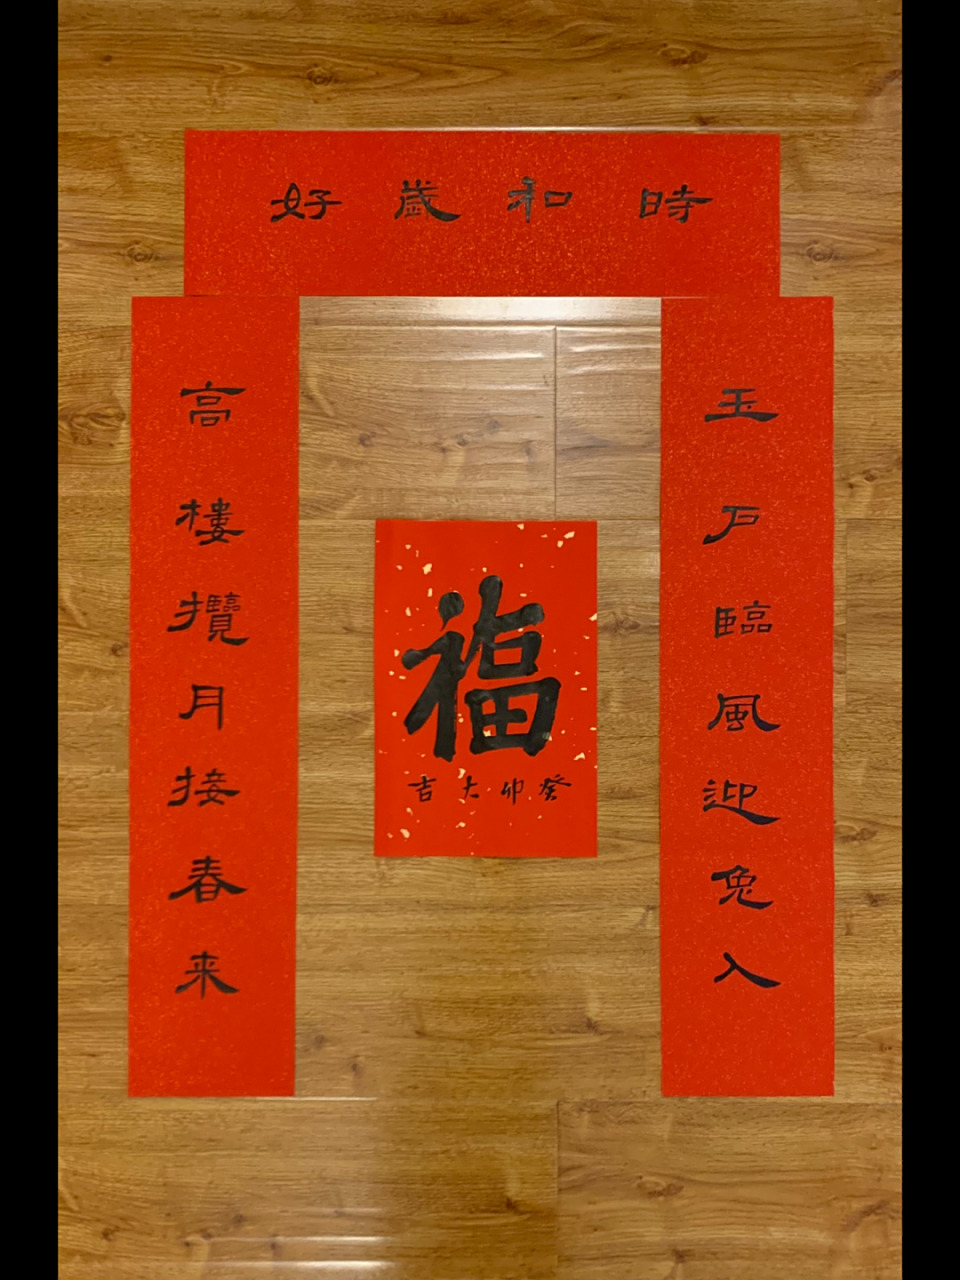 時和歲好
玉戶臨風迎兔入
高樓攬月接春来
福
癸卯大吉